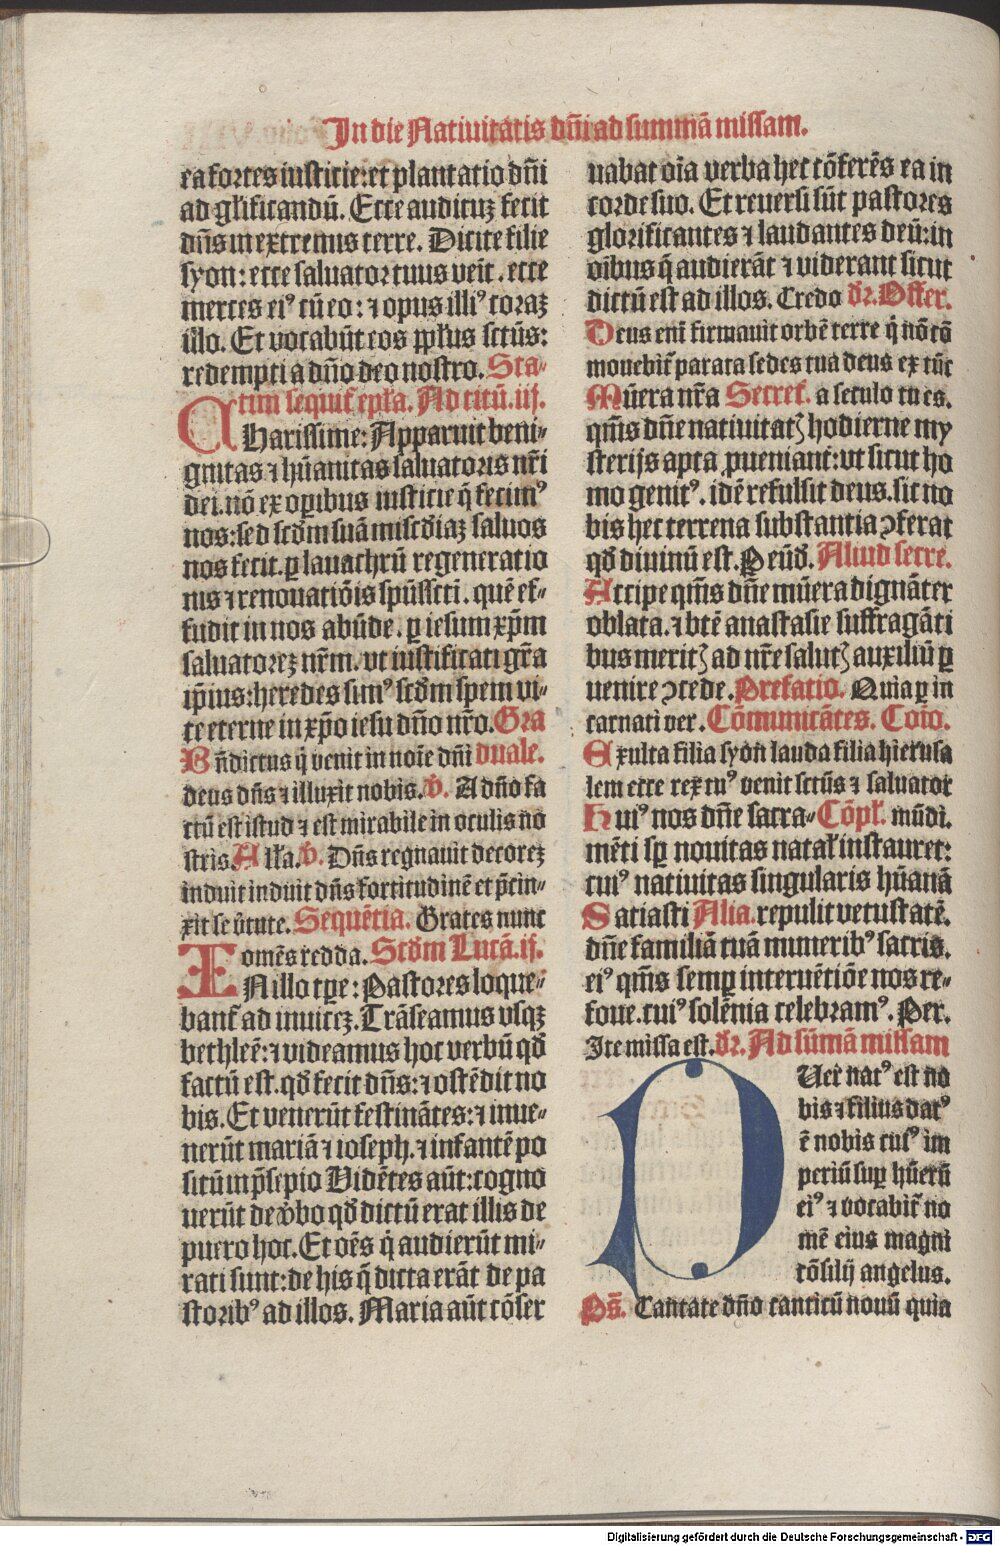 In die Natiuitatis dñi ad summã missam.
ea fortes iusticie: et plantatio dñi
ad gl̃ificandũ. Ecce audituꝫ fecit
dñs in extremis terre. Dicite filie
syon: ecce saluator tuus veñit. ecce
merces eiꝰ cũ eo: ⁊ opus illiꝰ coraꝫ
illo. Et vocabũt eos ppl̃us sctũs:
redempti a dño deo nostro. Sta-
tim sequit̃ epl̃a. Ad titũ. iij.
CHarissime: Apparuit beni-
gnitas ⁊ hũanitas saluatoris nr̃i
dei. nõ ex oꝑibus iusticie q̃ fecimꝰ
nos: sed scd̃m suã misc̃diaꝫ saluos
nos fecit. ꝑ lauachrũ regeneratio
nis ⁊ renouatiõis spũssctĩ. quẽ ef-
fudit in nos abũde. ꝑ iesum xp̃m
saluatoreꝫ nr̃m. vt iustificati gr̃a
ip̃ius: heredes simꝰ scd̃m spem vi-
te eterne in xp̃o iesu dño nr̃o. Gra
Bñdictus q̃ venit in noĩe dñi duale.
deus dñs ⁊ illuxit nobis. ℣. A dño fa
ctũ est istud ⁊ est mirabile in oculis no
stris. All̃a. ℣. Dñs regnauit decoreꝫ
induit induit dñs fortitudinẽ et p̃cin-
xit se v̓tute. Sequẽtia. Grates nunc
omẽs redda. Scd̃m Lucã. ij.
IN illo tꝑe: Pastores loque-
bant̃ ad inuiceꝫ. Trãseamus vsqꝫ
bethleẽ: ⁊ videamus hoc verbũ qd̃
factũ est. qd̃ fecit dñs: ⁊ ostẽdit no
bis. Et venerũt festinãtes: ⁊ inue-
nerũt mariã ⁊ ioseph. ⁊ infantẽ po
situm p̃sepio Vidẽtes aũt: cogno
uerũt de v̓bo qd̃ dictũ erat illis de
puero hoc. Et oẽs q̃ audierũt mi-
rati sunt: de his q̃ dicta erãt de pa
storibꝰ ad illos. Maria aũt cõser
uabat oĩa verba hec cõferẽs ea in
corde suo. Et reuersi sũt pastores
glorificantes ⁊ laudantes deũ: in
oĩbus q̃ audierãt ⁊ viderant sicut
dictũ est ad illos. Credo dr̃. Offer.
Deus eni͂ firmauit orbẽ terre q̃ nõ cõ
mouebit̃ parata sedes tua deus ex tũc
Mũera nr̃a Secret̃. a seculo tu es.
qm̃s dñe natiuitatꝭ hodierne my
sterijs apta ꝓueniant: vt sicut ho
mo genitꝰ. idẽ refulsit deus. sic no
bis hec terrena substantia ꝯferat
qd̃ diuinũ est. P eũd̃. Aliud secre.
Accipe qm̃s dñe mũera dignãter
oblata. ⁊ btẽ anastasie suffragãti
bus meritꝭ ad nr̃e salutꝭ auxiliũ ꝑ
uenire ꝯcede. Prefatio. Quia ꝑ in
carnati ver. Cõmunicãtes. Coĩo.
Exulta filia syon lauda filia hierusa
lem ecce rex tuꝰ venit sctũs ⁊ saluator
Huiꝰ nos dñe sacra- Cõpl̃. mũdi.
mẽti sꝑ nouitas natal̃ instauret:
cuiꝰ natiuitas singularis hũanã
Satiasti Alia. repulit vetustatẽ.
dñe familiã tuã muneribꝰ sacris.
eiꝰ qm̃s semꝑ interuẽtiõe nos re-
foue. cuiꝰ solẽnia celebramꝰ. Per.
Ite missa est. dr̃. Ad sũmã missam
PUer natꝰ est no
bis ⁊ filius datꝰ
ẽ nobis cuiꝰ im
periũ suꝑ hũerũ
eiꝰ ⁊ vocabit̃ no
mẽ eius magni
cõsilij angelus.
Ps̃. Cantate dño canticũ nouũ quia
Digitalisierung gefördert durch die Deutsche Forschungsgemeinschaft - DFG